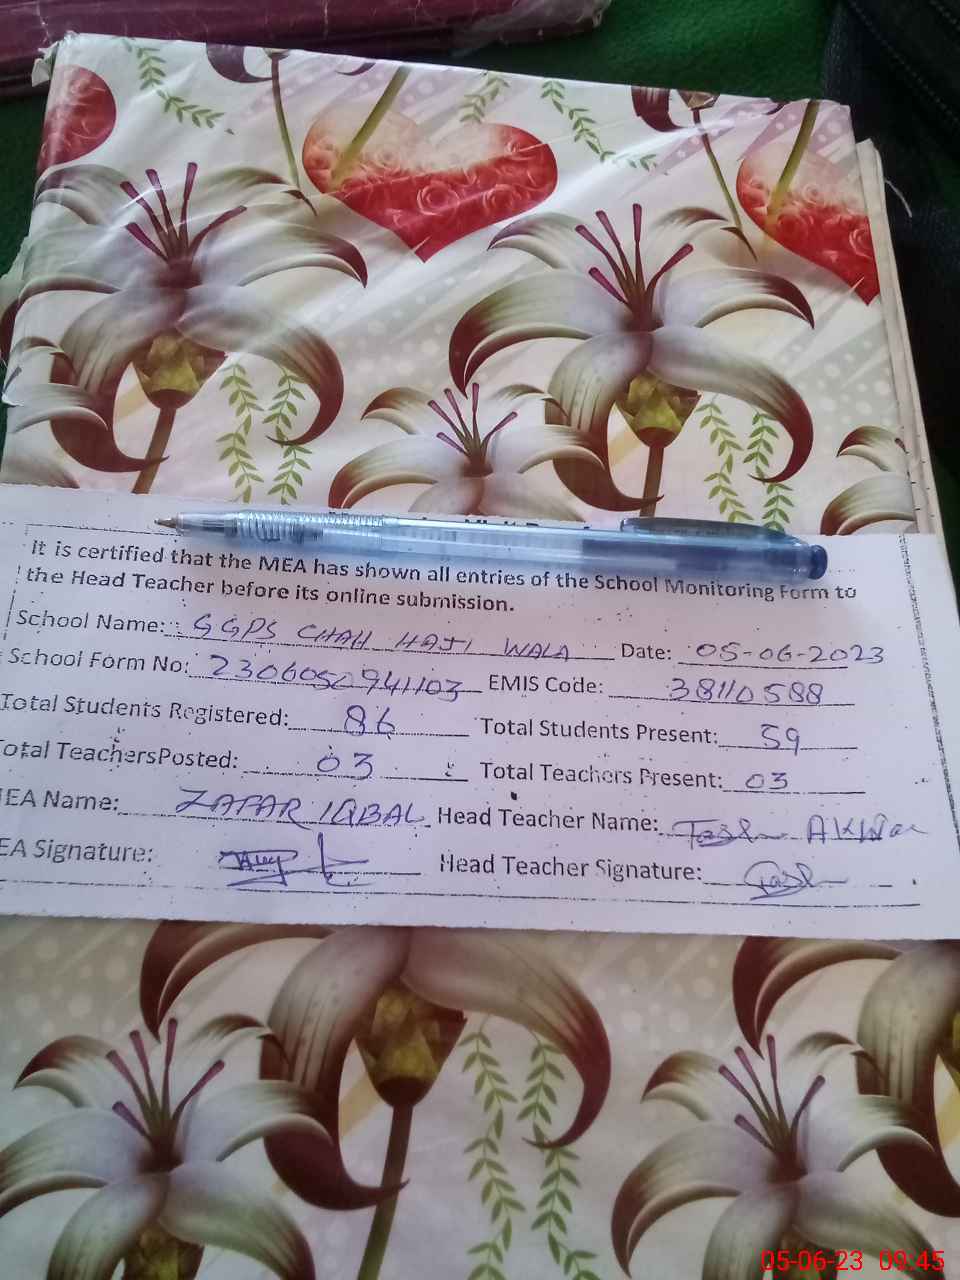 It is certified that the MEA has shown all entries of the School Monitoring Form to
the Head Teacher before its online submission.
School Name: GGPS CHAH HAJI WALA Date: 05-06-2023
School Form No: 2306050941103 EMIS Code: 38110588
Total Students Registered: 86 Total Students Present: 59
Total TeachersPosted: 03 Total Teachers Present: 03
MEA Name: ZAFAR IQBAL Head Teacher Name:
EA Signature: Head Teacher Signature:
05-06-23 09:45